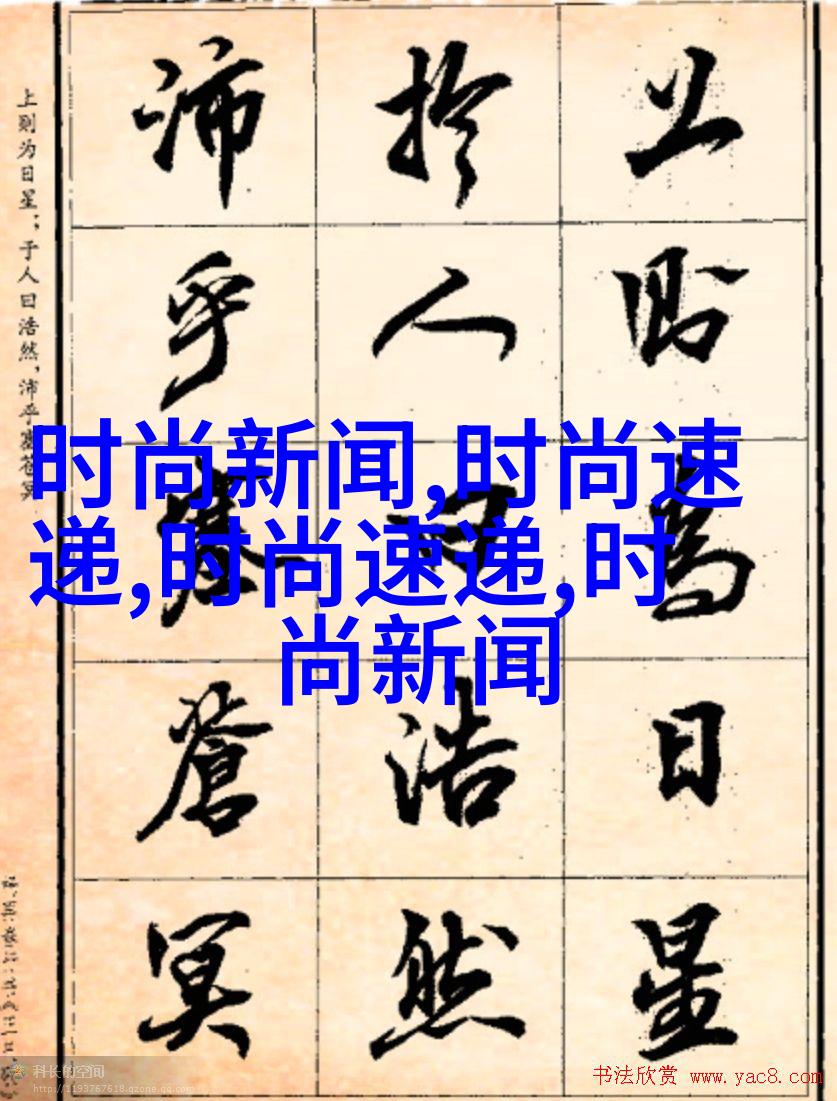 上则为日星；于人曰浩然，沛乎塞苍冥
上則為日星
扵人曰浩然
沛乎塞蒼冥
时尚新闻,时尚速
递,时尚速递,时
尚新闻
科长的空间
http://1193767618.qzone.qq.com
书法欣赏 www.yac8.com